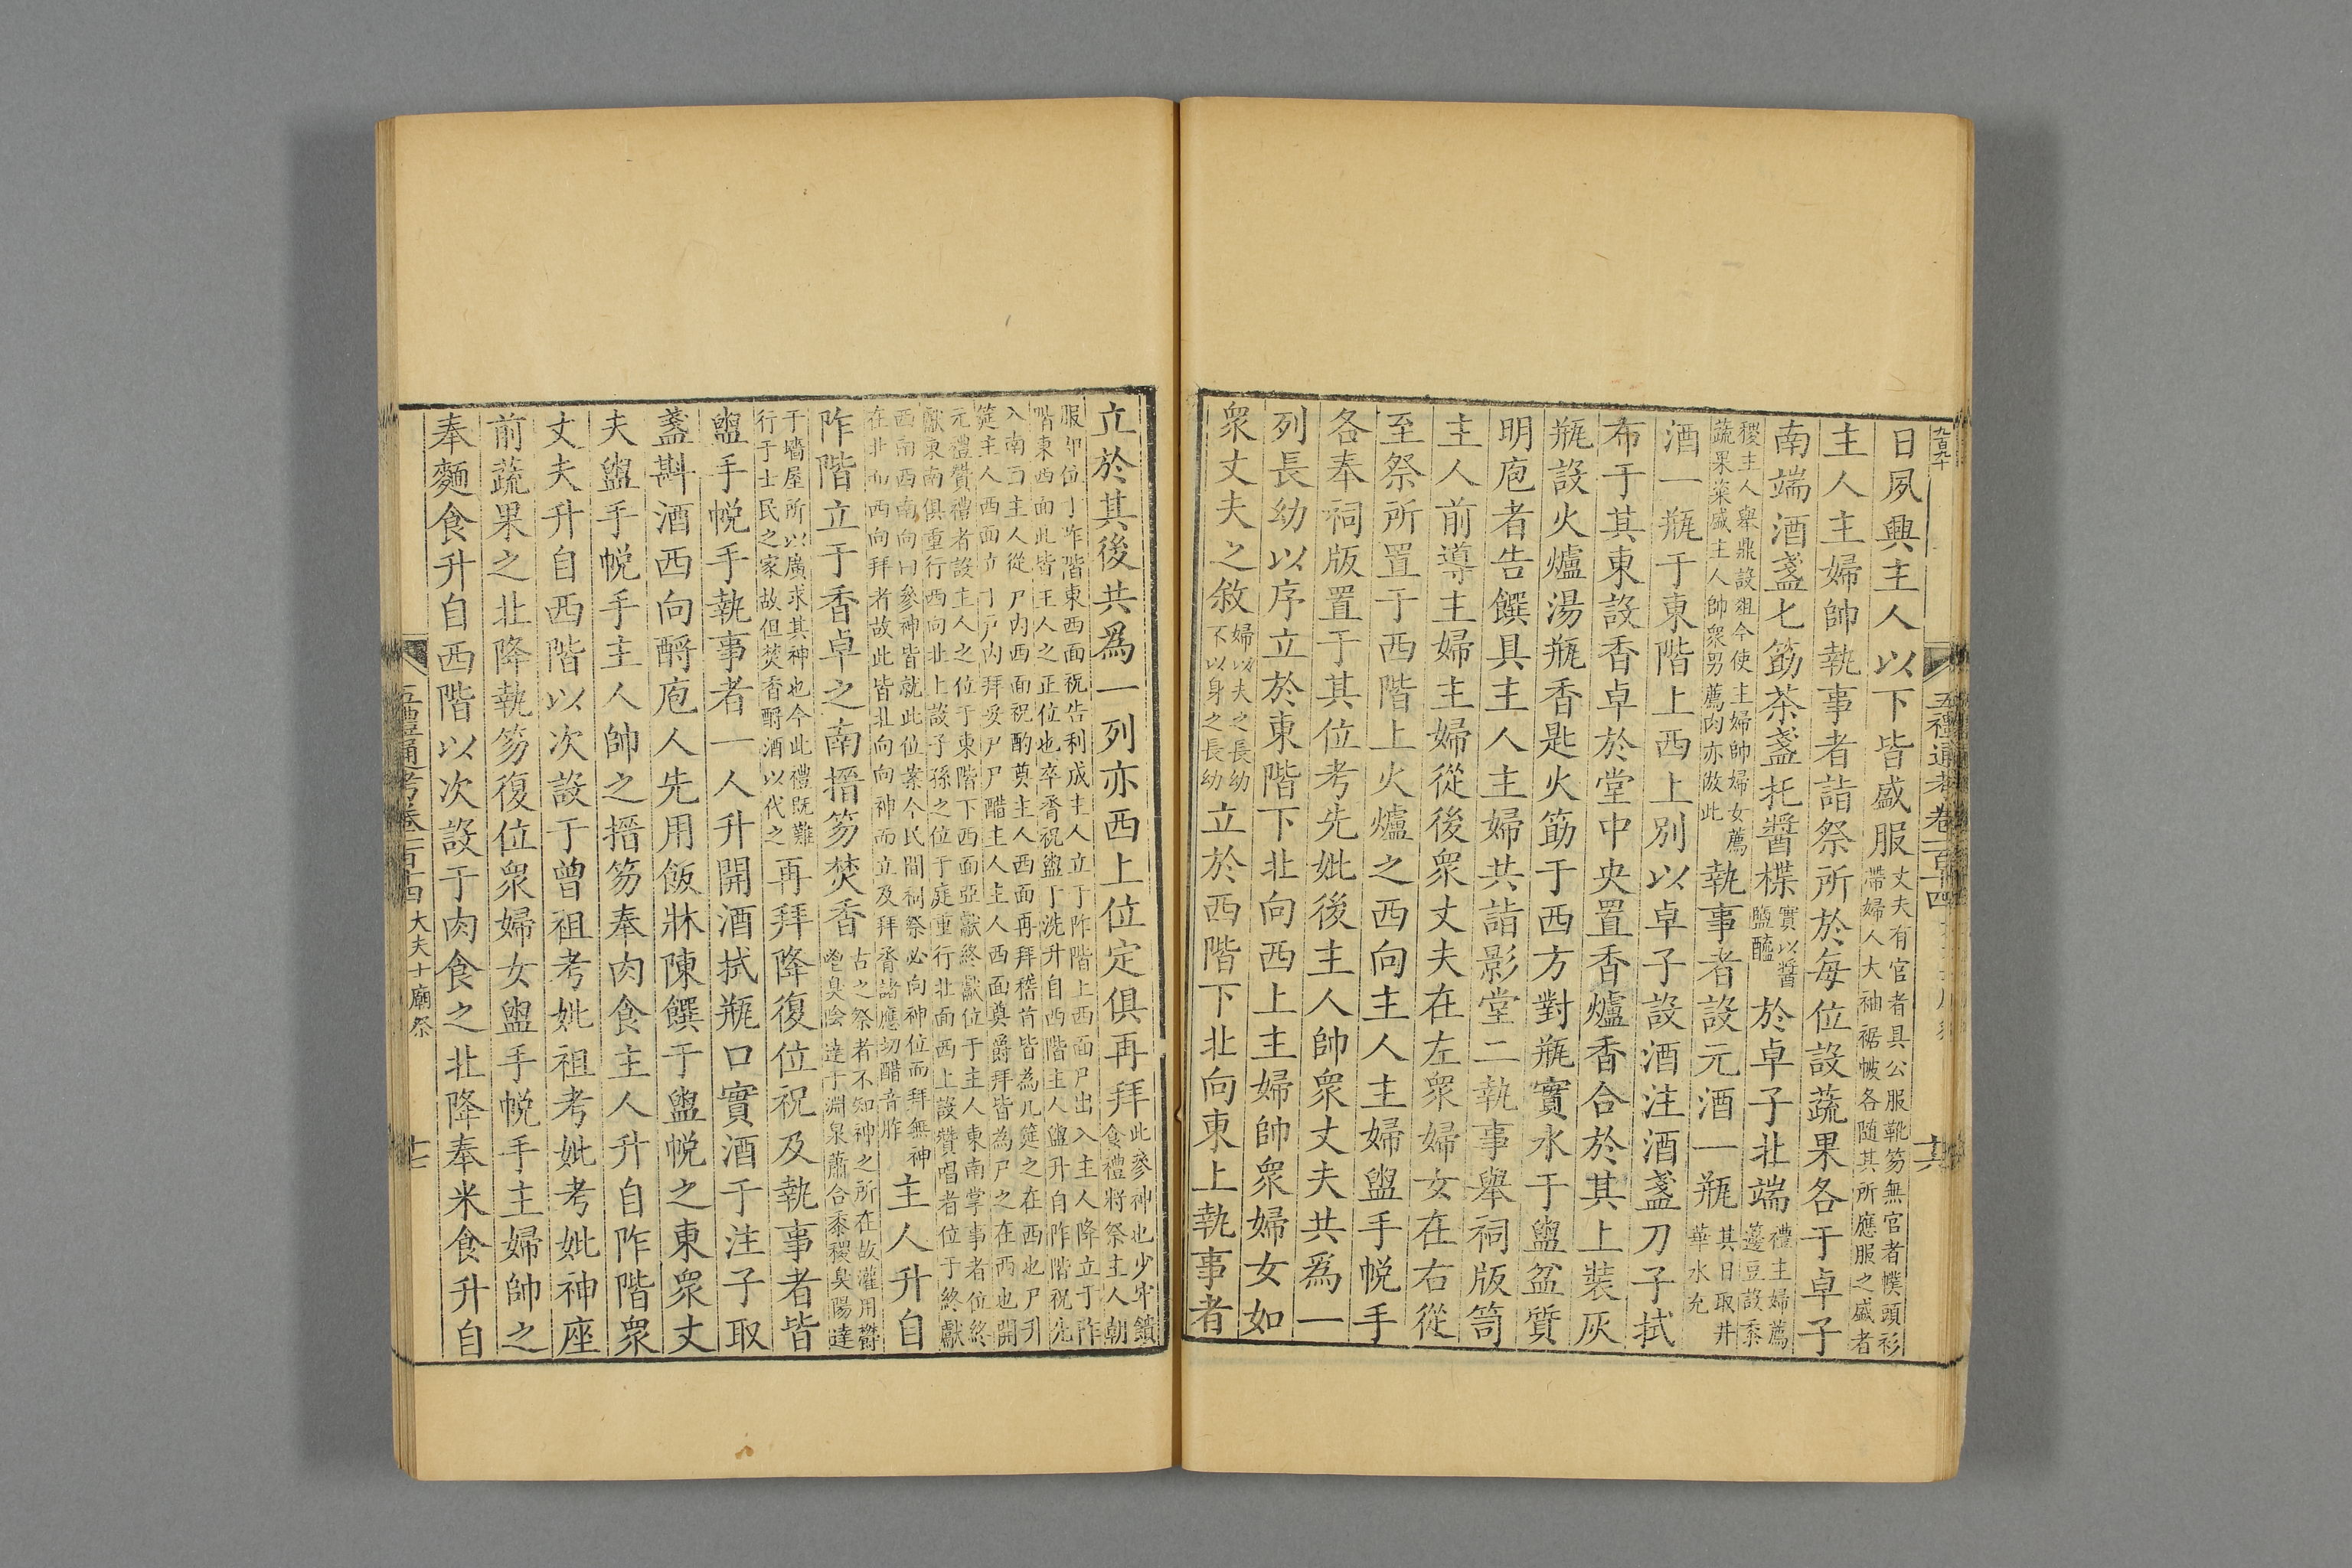 日夙興主人以下皆盛服丈夫有官者具公服靴笏無官者幞頭衫帶婦人大袖裾帔各隨其所應服之盛者
主人主婦帥執事者詣祭所於每位設蔬果各于卓子
南端酒盞匕筯茶盞托醬楪實以醬鹽醯於卓子北端禮主婦薦籩豆設黍
稷主人舉鼎設俎今使主婦帥婦女薦蔬果粢盛主人帥衆男薦肉亦倣此執事者設元酒一瓶其日取井華水充
酒一瓶于東階上西上別以卓子設酒注酒盞刀子拭
布于其東設香卓於堂中央置香爐香合於其上裝灰
瓶設火爐湯瓶香匙火筯于西方對瓶實水于盥盆質
明庖者告饌具主人主婦共詣影堂二執事舉祠版笥
主人前導主婦主婦從後衆丈夫在左衆婦女在右從
至祭所置于西階上火爐之西向主人主婦盥手帨手
各奉祠版置于其位考先妣後主人帥衆丈夫共爲一
列長幼以序立於東階下北向西上主婦帥衆婦女如
衆丈夫之敘婦以夫之長幼不以身之長幼立於西階下北向東上執事者
立於其後共爲一列亦西上位定俱再拜此參神也少牢饋食禮將祭主人朝
服卽位于阼階東西面祝告利成主人立于阼階上西面尸出入主人降立于阼階東西面此皆主人之正位也卒胥祝盥于洗升自西階主人盥升自阼階祝先
入南面主人從尸内西面祝酌奠主人西面再拜稽首皆為几筵之在西也尸升筵主人西面立于戸内拜妥尸尸醋主人主人西面奠爵拜皆為尸之在西也開
元禮贊禮者設主人之位于東階下西面亞獻終獻位于主人東南掌事者位終獻東南俱重行西向北上設子孫之位于庭重行北面西上設贊唱者位于終獻
西南西南向曰參神皆就此位案今民間祠祭必向神位而拜無神在北而西向拜者故此皆北向向神而立及拜胥諸應切醋音胙主人升自
阼階立于香卓之南搢笏焚香古之祭者不知神之所在故灌用鬱鬯臭陰達于淵泉蕭合黍稷臭陽達
于墻屋所以廣求其神也今此禮旣難行于士民之家故但焚香酹酒以代之再拜降復位祝及執事者皆
盥手帨手執事者一人升開酒拭瓶口實酒于注子取
盞斟酒西向酹庖人先用飯牀陳饌于盥帨之東衆丈
夫盥手帨手主人帥之搢笏奉肉食主人升自阼階衆
丈夫升自西階以次設于曾祖考妣祖考妣考妣神座
前蔬果之北降執笏復位衆婦女盥手帨手主婦帥之
奉麵食升自西階以次設于肉食之北降奉米食升自
五禮通考卷一百十四 大夫士廟祭